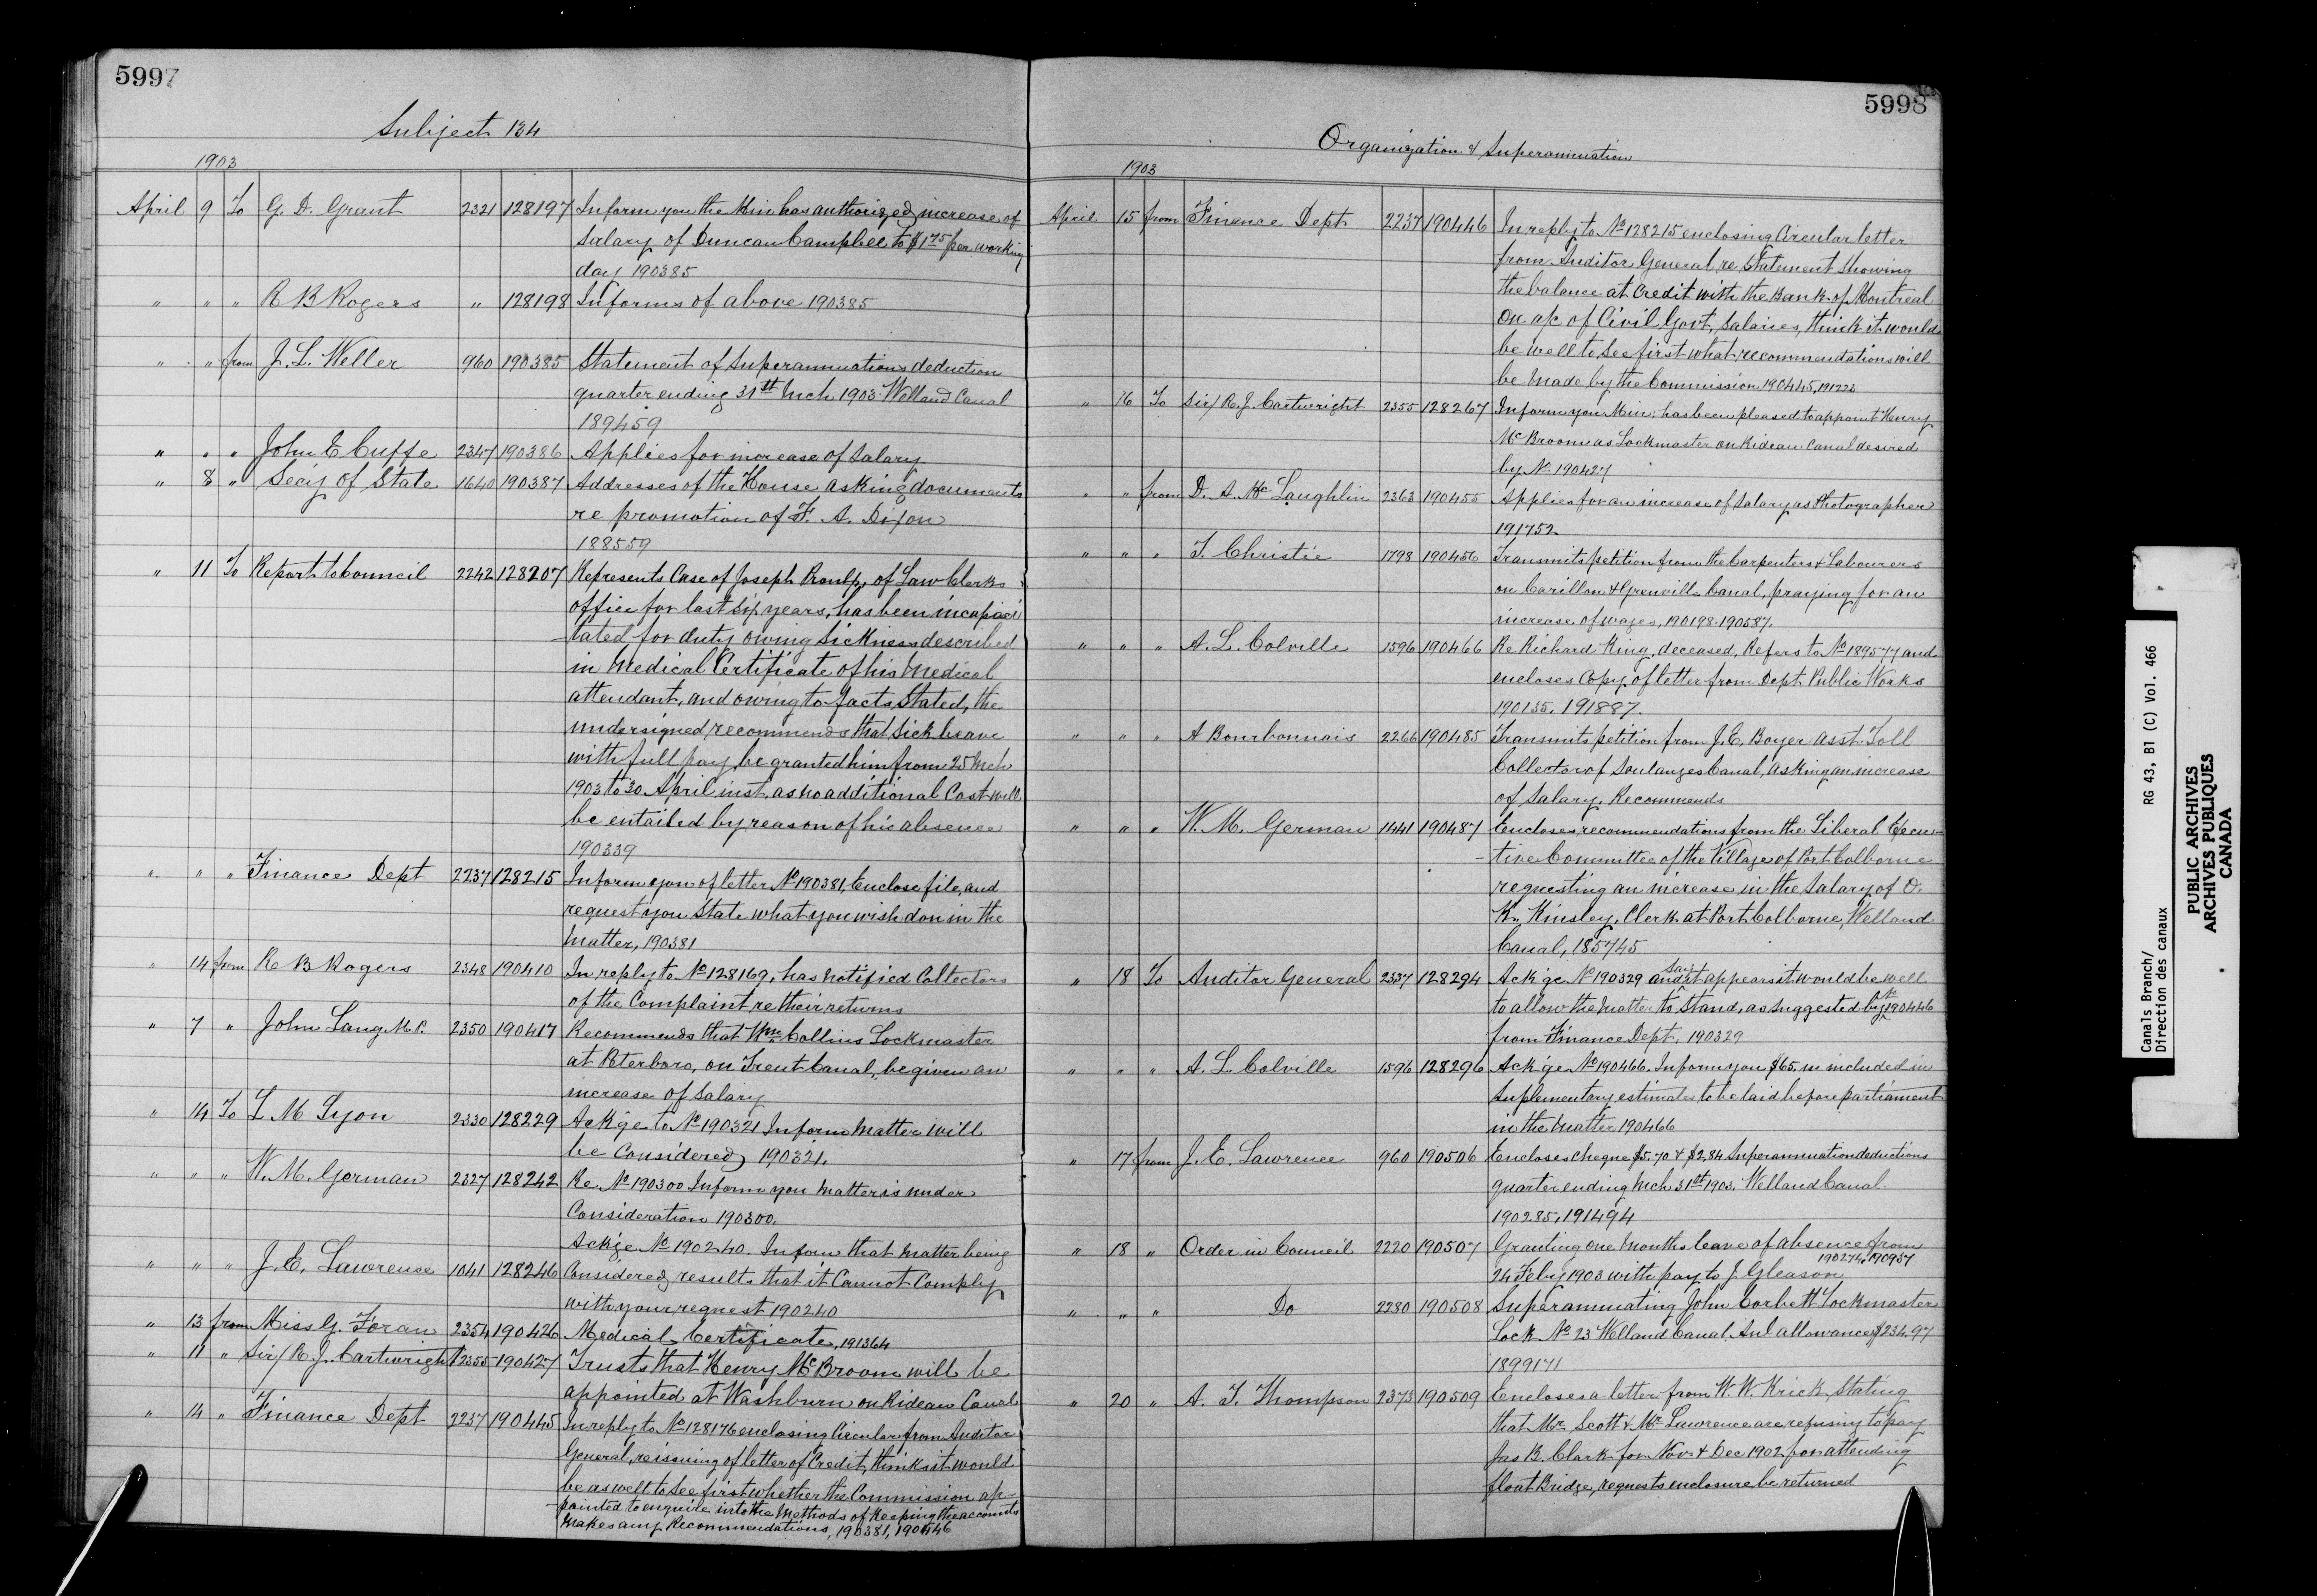 5997
Subject 134
1903
April 9 To G. D. Grant 2321 128197 Inform you the Min has authorized increase of
salary of Duncan Campbell to $1.75 per working
day 190385
" " " R B Rogers " 128198 Informs of above 190385
" " from J. L. Weller 960 190385 Statement of Superannuations deduction
quarter ending 31st Mch 1903 Welland Canal
189459
" " " John E Cuffe 2347 190386 Applies for increase of Salary
" 8 " Secy of State 1640 190387 Addresses of the House asking documents
re promotion of F. A. Dixon
188559
" 11 To Report to Council 2242 128207 Represents Case of Joseph Proulx, of Law Clerks
office for last six years, has been incapaci
tated for duty owing Sickness described
in Medical Certificate of his Medical
attendant, and owing to facts Stated, the
undersigned recommends that Sick leave
with full pay be granted him from 25 Mch
1903 to 30 April inst. as no additional Cost will
be entailed by reason of his absence
190339
" " " Finance Dept 2237 128215 Inform you of letter No 190381, Enclose file, and
request you State what you wish don in the
Matter, 190381
" 14 from R B Rogers 2348 190410 In reply to No 128169, has notified Collectors
of the Complaint re their returns
" 7 " John Lang M.P. 2350 190417 Recommends that Wm Collins Lockmaster
at Peterboro, on Trent Canal, be given an
increase of Salary
" 14 To L M Lyon 2330 128229 Ackge to No 190321 Inform Matter will
be Considered 190321.
" " " W. M. German 2327 128242 Re No 190300 Inform you Matter is under
Consideration 190300.
Ackge No 190240. Inform that Matter being
" " " J. E. Lawrense 1041 128246 Considered results that it Cannot Comply
with your request 190240
" 13 from Miss G. Foran 2354 190426 Medical Certificate, 191364
" 11 " Sir/ R. J. Cartwright 2355 190427 Trusts that Henry McBroom will be
appointed at Washburn on Rideau Canal
" 14 " Finance Dept 2237 190445 In reply to No 128176 enclosing Circular from Auditor
General, re issuing of letter of Credit, thinks it would
be as well to See first whether the Commission ap-
pointed to enquire into the Methods of Keeping the accounts
Makes any Recommendations, 190381, 190446
5998
Organization & Superannuation
1903
April 15 from Finance Dept 2237 190446 In reply to No 128215 enclosing Circular letter
from Auditor General re Statement Showing
the balance at Credit with the Bank of Montreal
On a/c of Civil Govt, Salaries, think it would
be well to See first what recommendations will
be Made by the Commission 190445, 191223
" 16 To Sir/ R. J. Cartwright 2355 128267 Inform you Min: has been pleased to appoint Henry
McBroom as Lockmaster on Rideau Canal desired
by No 190427
" " from D. A. McLaughlin 2363 190455 Applies for an increase of Salary as Photographer
191752
" " " T. Christie 1798 190456 Transmits petition from the Carpenters & Labourers
on Carillon & Grenville Canal, praying for an
increase of wages, 190198. 190587.
" " " A. L. Colville 1596 190466 Re Richard King, deceased, Refers to No 189577 and
encloses Copy of letter from Dept Public Works
190135, 191887.
" " " A Bourbonnais 2266 190485 Transmits petition from J. E. Boyer Asst. Toll
Collector of Soulanges Canal, asking an increase
of Salary, Recommends
" " " W. M. German 1441 190487 Encloses recommendations from the Liberal Execu-
-tive Committee of the Village of Port Colborne
requesting an increase in the Salary of O.
K. Kinsley, Clerk at Port Colborne, Welland
Canal, 185745
" 18 To Auditor General 2337 128294 Ackge No 190329 and say it appears it would be well
to allow the Matter to Stand, as Suggested by No 190446
from Finance Dept. 190329
" " " A. L. Colville 1596 128296 Ackge No 190466. Inform you $65. is included in
Suplementary estimates to be laid before parliament
in the Matter 190466
" 17 from J. E. Lawrence 960 190506 Encloses cheque $5.70 & $2.84 Superannuation deductions
quarter ending Mch 31st 1903. Welland Canal.
190285, 191494
" 18 " Order in Council 2220 190507 Granting one Months leave of absence from
190274, 190957
24 Feby 1903 with pay to J. Gleason
" " " Do 2280 190508 Superannuating John Corbett Lockmaster
Lock No 23 Welland Canal, Anl allowance $234.97
1899171
" 20 " A. T. Thompson 2373 190509 Encloses a letter from W. W. Krick, Stating
that Mr Scott & Mr Lawrence are refusing to pay
Jas B. Clark for Nov & Dec 1902 for attending
float Bridge, requests enclosure be returned
Canals Branch/
Direction des canaux
RG 43, B1 (C) Vol. 466
PUBLIC ARCHIVES
ARCHIVES PUBLIQUES
CANADA